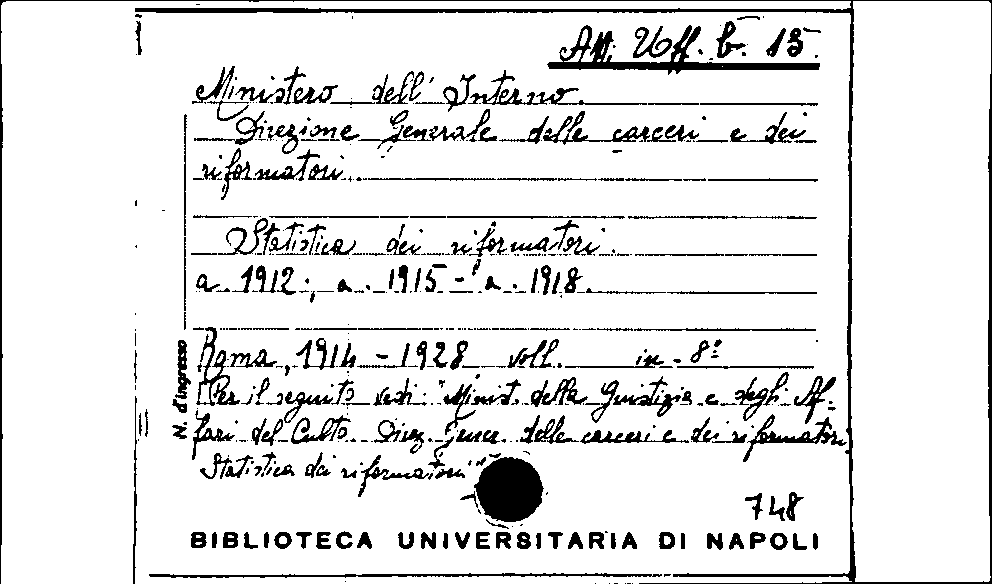 Att. Uff. b. 15.
Ministero dell' Interno.
Direzione Generale delle carceri e dei
riformatori.
Statistica dei riformatori.
a. 1912; a. 1915 - a. 1918.
Roma, 1914 - 1928 voll. in - 8º
(Per il seguito vedi: "Minist. della Giustizia e degli Af-
fari del Culto. Direz. Gener. delle carceri e dei riformatori.
Statistica dei riformatori"
N. d'ingresso
748
BIBLIOTECA UNIVERSITARIA DI NAPOLI